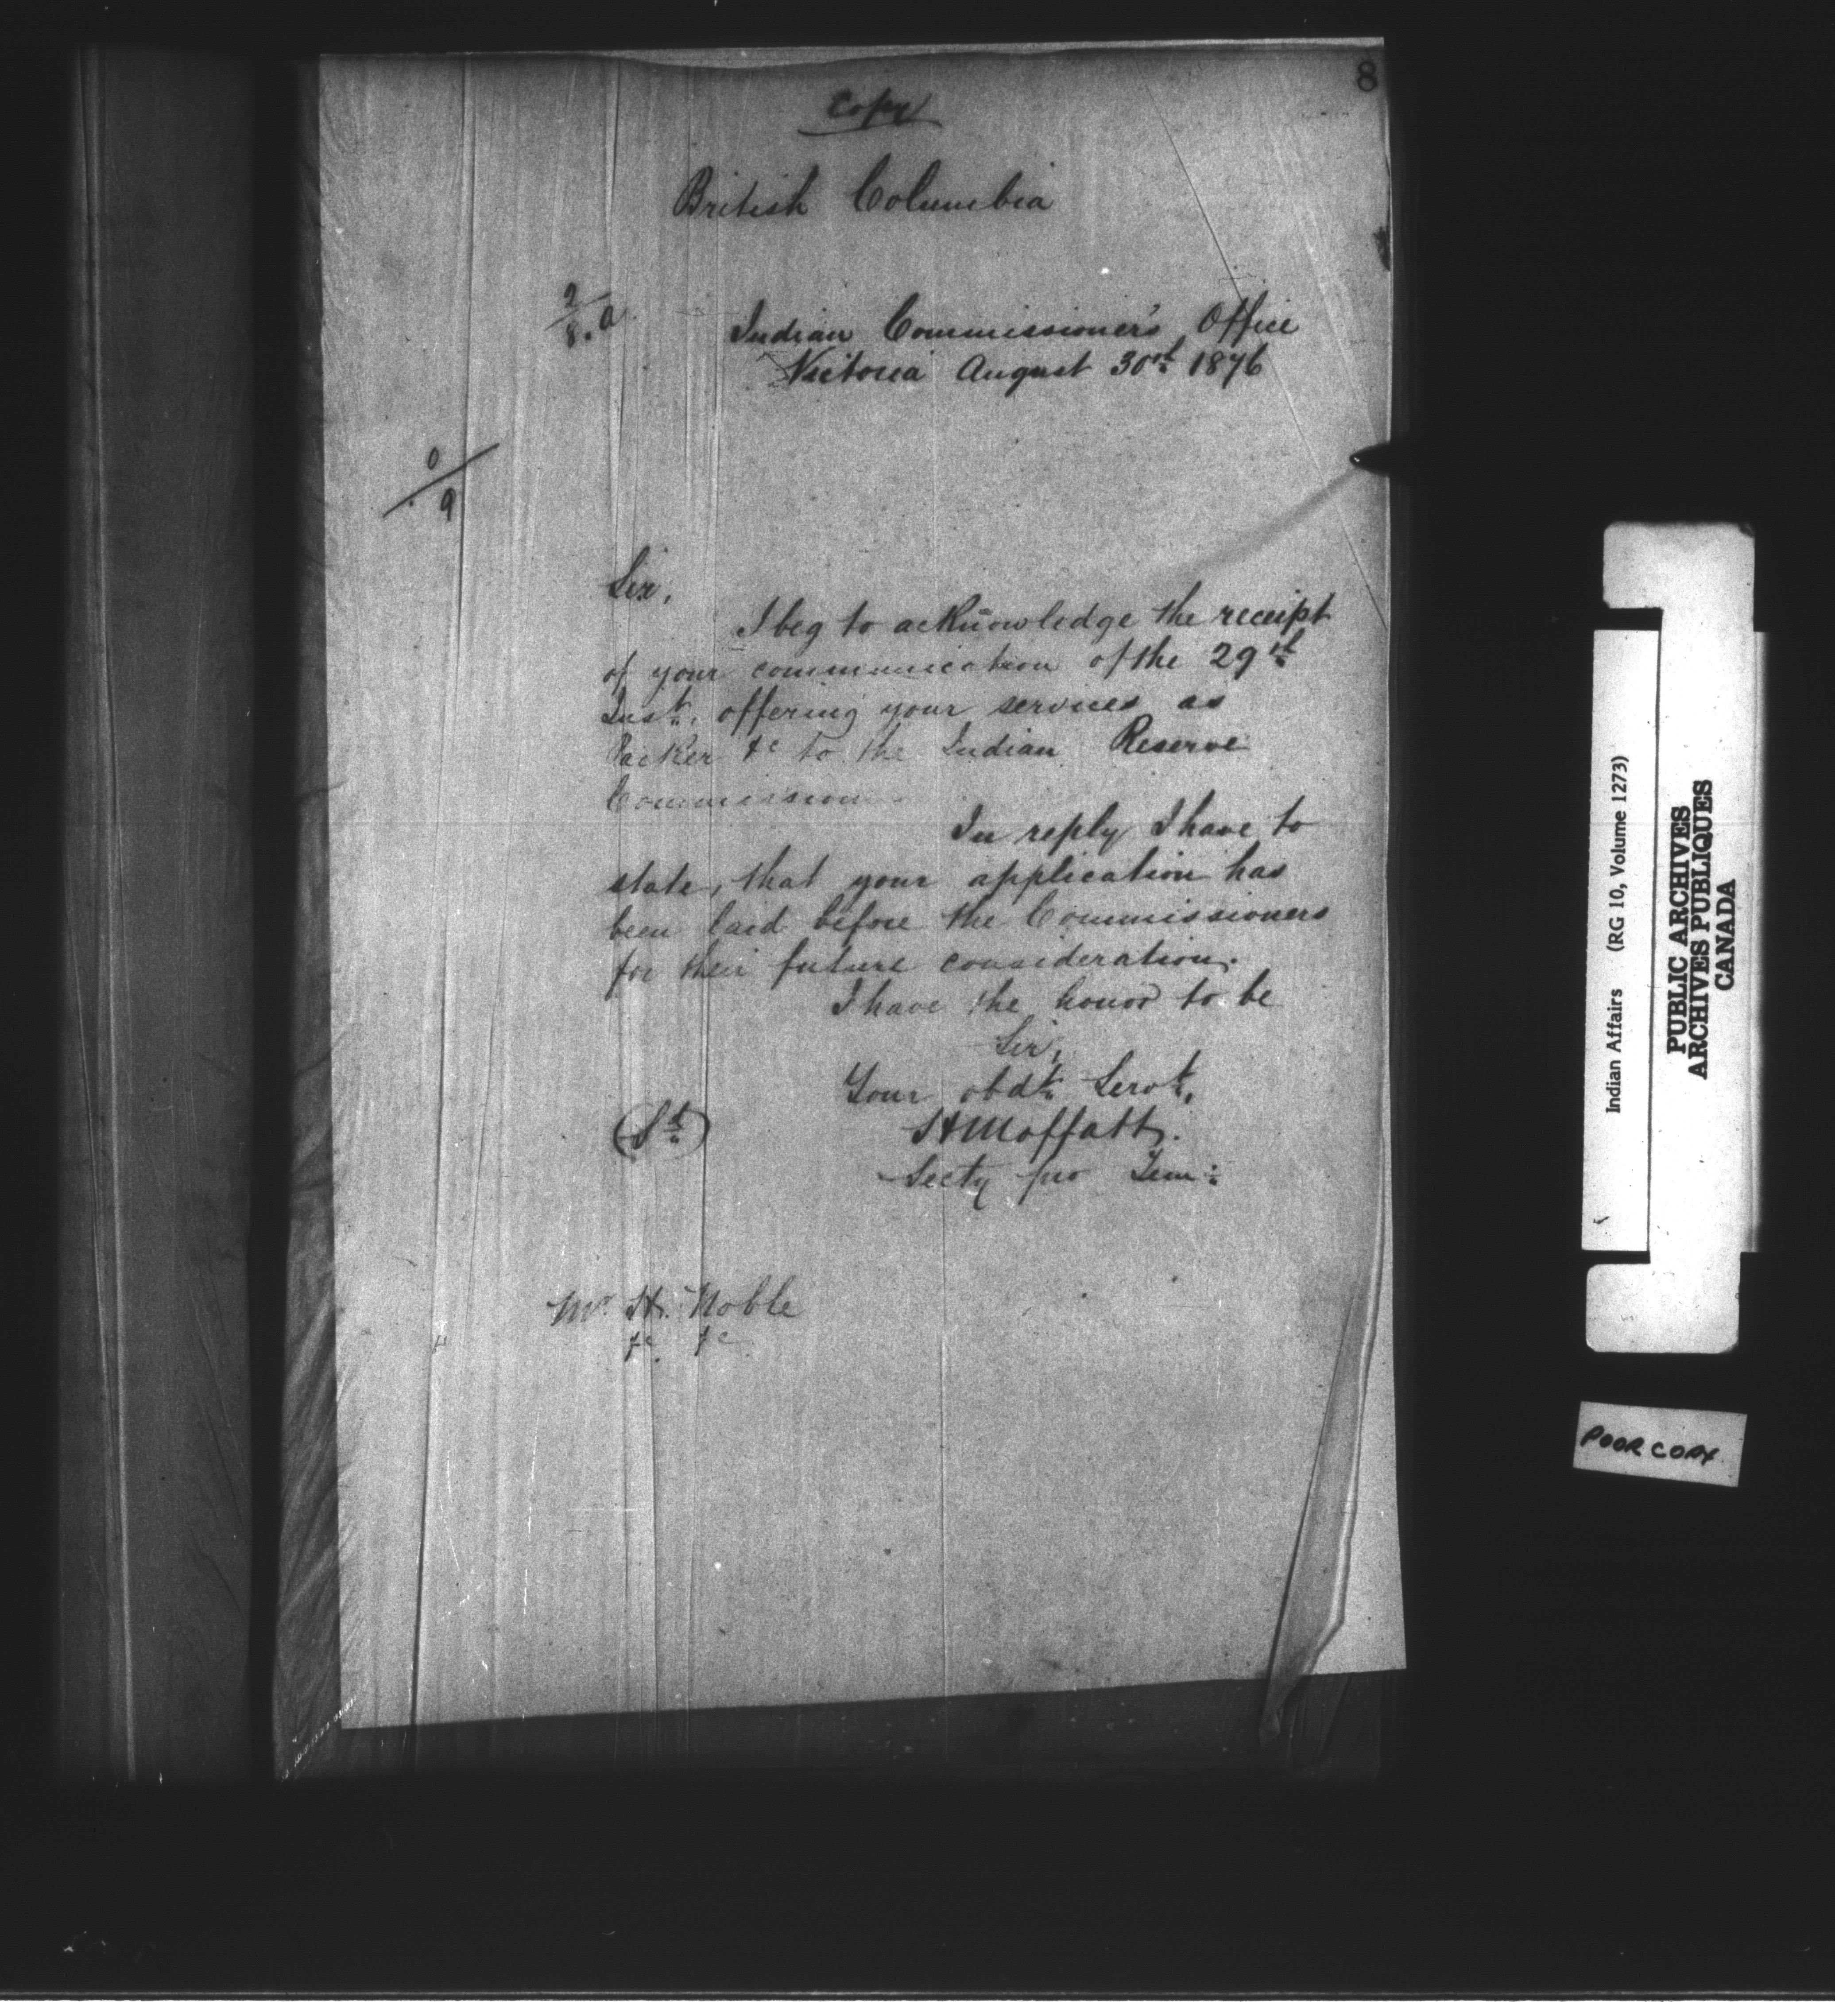 8
Copy
British Columbia
2/8.a
Indian Commissioner's Office
Victoria August 30th 1876
0/9
Sir,
I beg to acknowledge the receipt
of your communication of the 29th
Inst. offering your services as
Packer &c to the Indian Reserve
Commission.
In reply I have to
state, that your application has
been laid before the Commissioners
for their future consideration.
I have the honor to be
Sir,
Your obdt. Servt.
(Sd)
H Moffatt.
Secty pro Tem:
Mr H. Noble
&c &c
Indian Affairs (RG 10, Volume 1273)
PUBLIC ARCHIVES
ARCHIVES PUBLIQUES
CANADA
POOR COPY